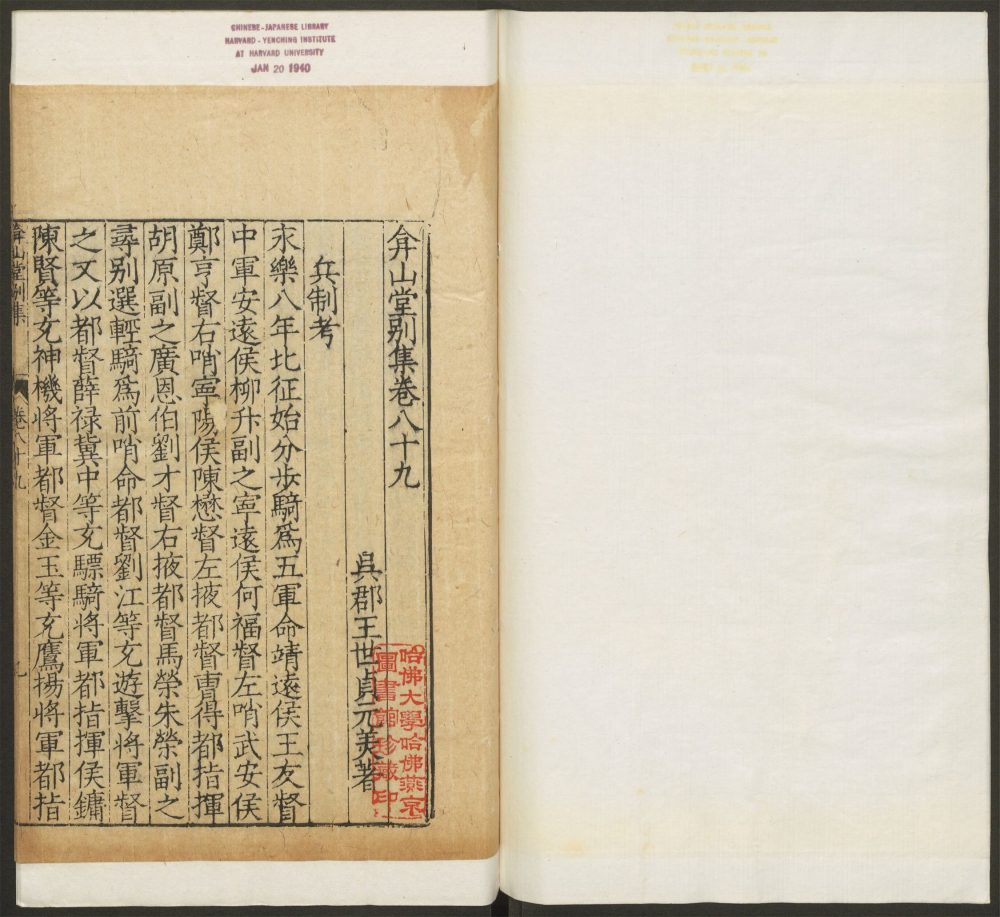 CHINESE-JAPANESE LIBRARY
HARVARD-YENCHING INSTITUTE
AT HARVARD UNIVERSITY
JAN 20 1940
弇山堂别集卷八十九
吳郡王世貞元美著
哈佛大學哈佛燕京
圖書館珍藏印
兵制考
永樂八年北征始分步騎爲五軍命靖遠侯王友督
中軍安遠侯柳升副之寧遠侯何福督左哨武安侯
鄭亨督右哨寧陽侯陳懋督左掖都督曹得都指揮
胡原副之廣恩伯劉才督右掖都督馬榮朱榮副之
尋别選輕騎爲前哨命都督劉江等充遊擊將軍督
之又以都督薛禄冀中等充驃騎將軍都指揮侯鏞
陳賢等充神機將軍都督金玉等充鷹揚將軍都指
弇山堂别集
卷八十九